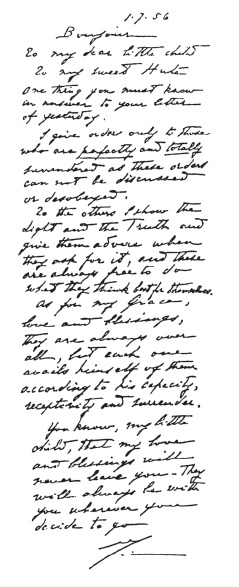 1.7.56
Bonjour
To my dear little child
To my sweet Huta
One thing you must know
in answer to your letter
of yesterday.
I give orders only to those
who are perfectly and totally
surrendered as these orders
can not be discussed
or desobeyed.
To the others I show the
Light and the Truth and
give them advice when
they ask for it, and these
are always free to do
what they think best for themselves.
As for my Grace,
love and blessings,
they are always over
all, but each one
avails himself of them
according to his capacity,
receptivity and surrender.
You know, my little
child, that my love
and blessings will
never leave you - They
will always be with
you wherever you
decide to go